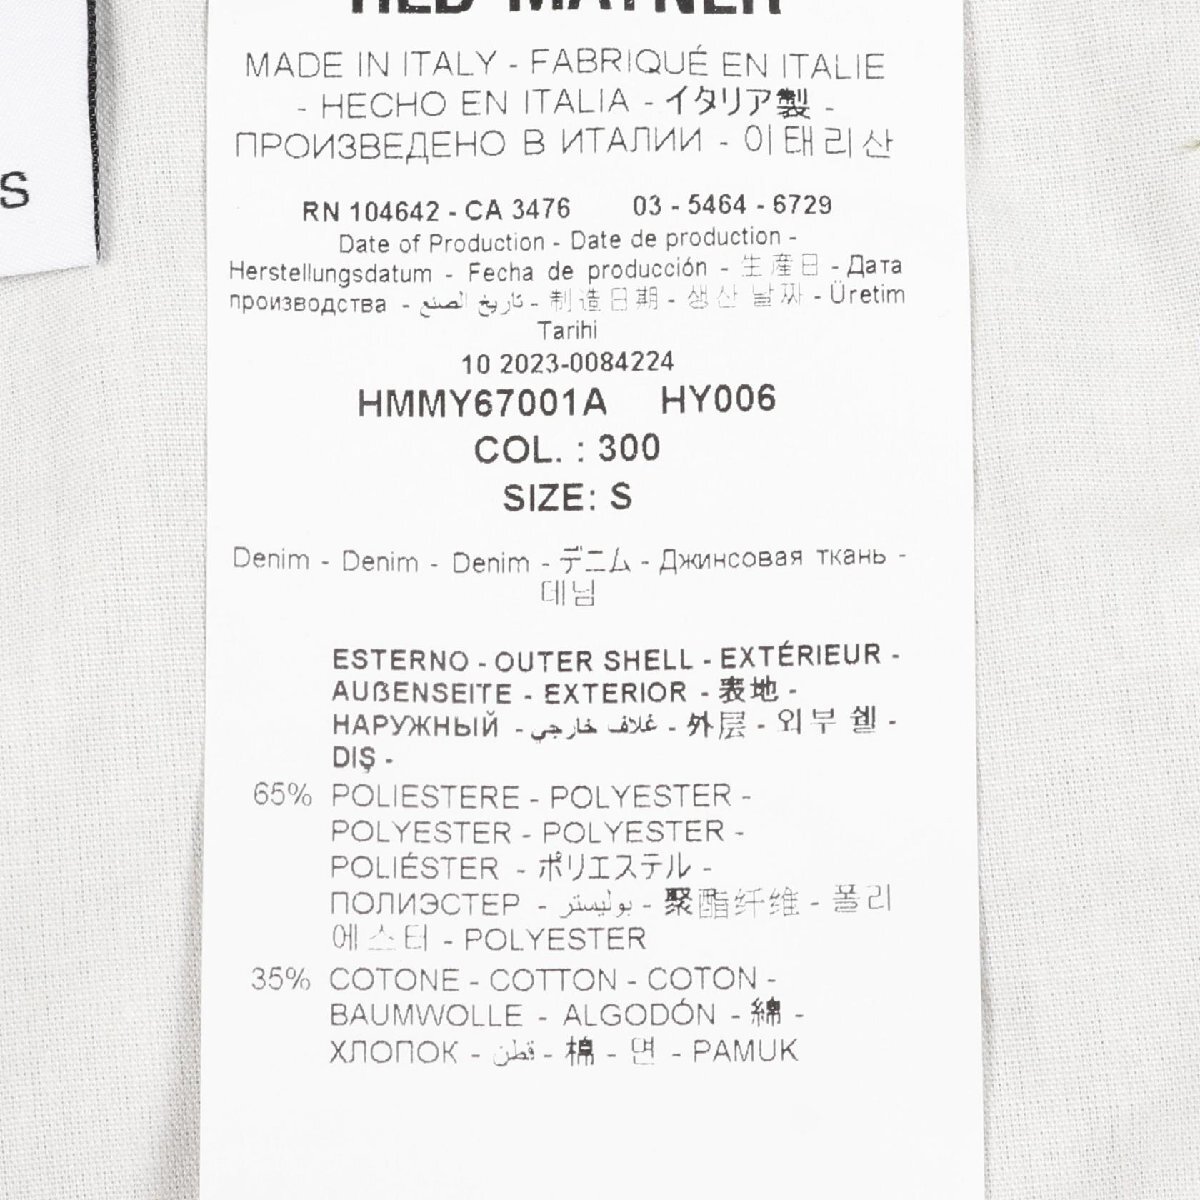 HED MAYNER
MADE IN ITALY - FABRIQUÉ EN ITALIE
- HECHO EN ITALIA - イタリア製 -
ПРОИЗВЕДЕНО В ИТАЛИИ - 이태리산
S
RN 104642 - CA 3476 03 - 5464 - 6729
Date of Production - Date de production -
Herstellungsdatum - Fecha de producción - 生産日 - Дата
производства - تاريخ الصنع - 制造日期 - 생산 날짜 - Üretim
Tarihi
10 2023-0084224
HMMY67001A HY006
COL. : 300
SIZE: S
Denim - Denim - Denim - デニム - Джинсовая ткань -
데님
ESTERNO - OUTER SHELL - EXTÉRIEUR -
AUßENSEITE - EXTERIOR - 表地 -
НАРУЖНЫЙ - غلاف خارجي - 外层 - 외부 쉘 -
DIŞ -
65% POLIESTERE - POLYESTER -
POLYESTER - POLYESTER -
POLIÉSTER - ポリエステル -
ПОЛИЭСТЕР - بوليستر - 聚酯纤维 - 폴리
에스터 - POLYESTER
35% COTONE - COTTON - COTON -
BAUMWOLLE - ALGODÓN - 綿 -
ХЛОПОК - قطن - 棉 - 면 - PAMUK